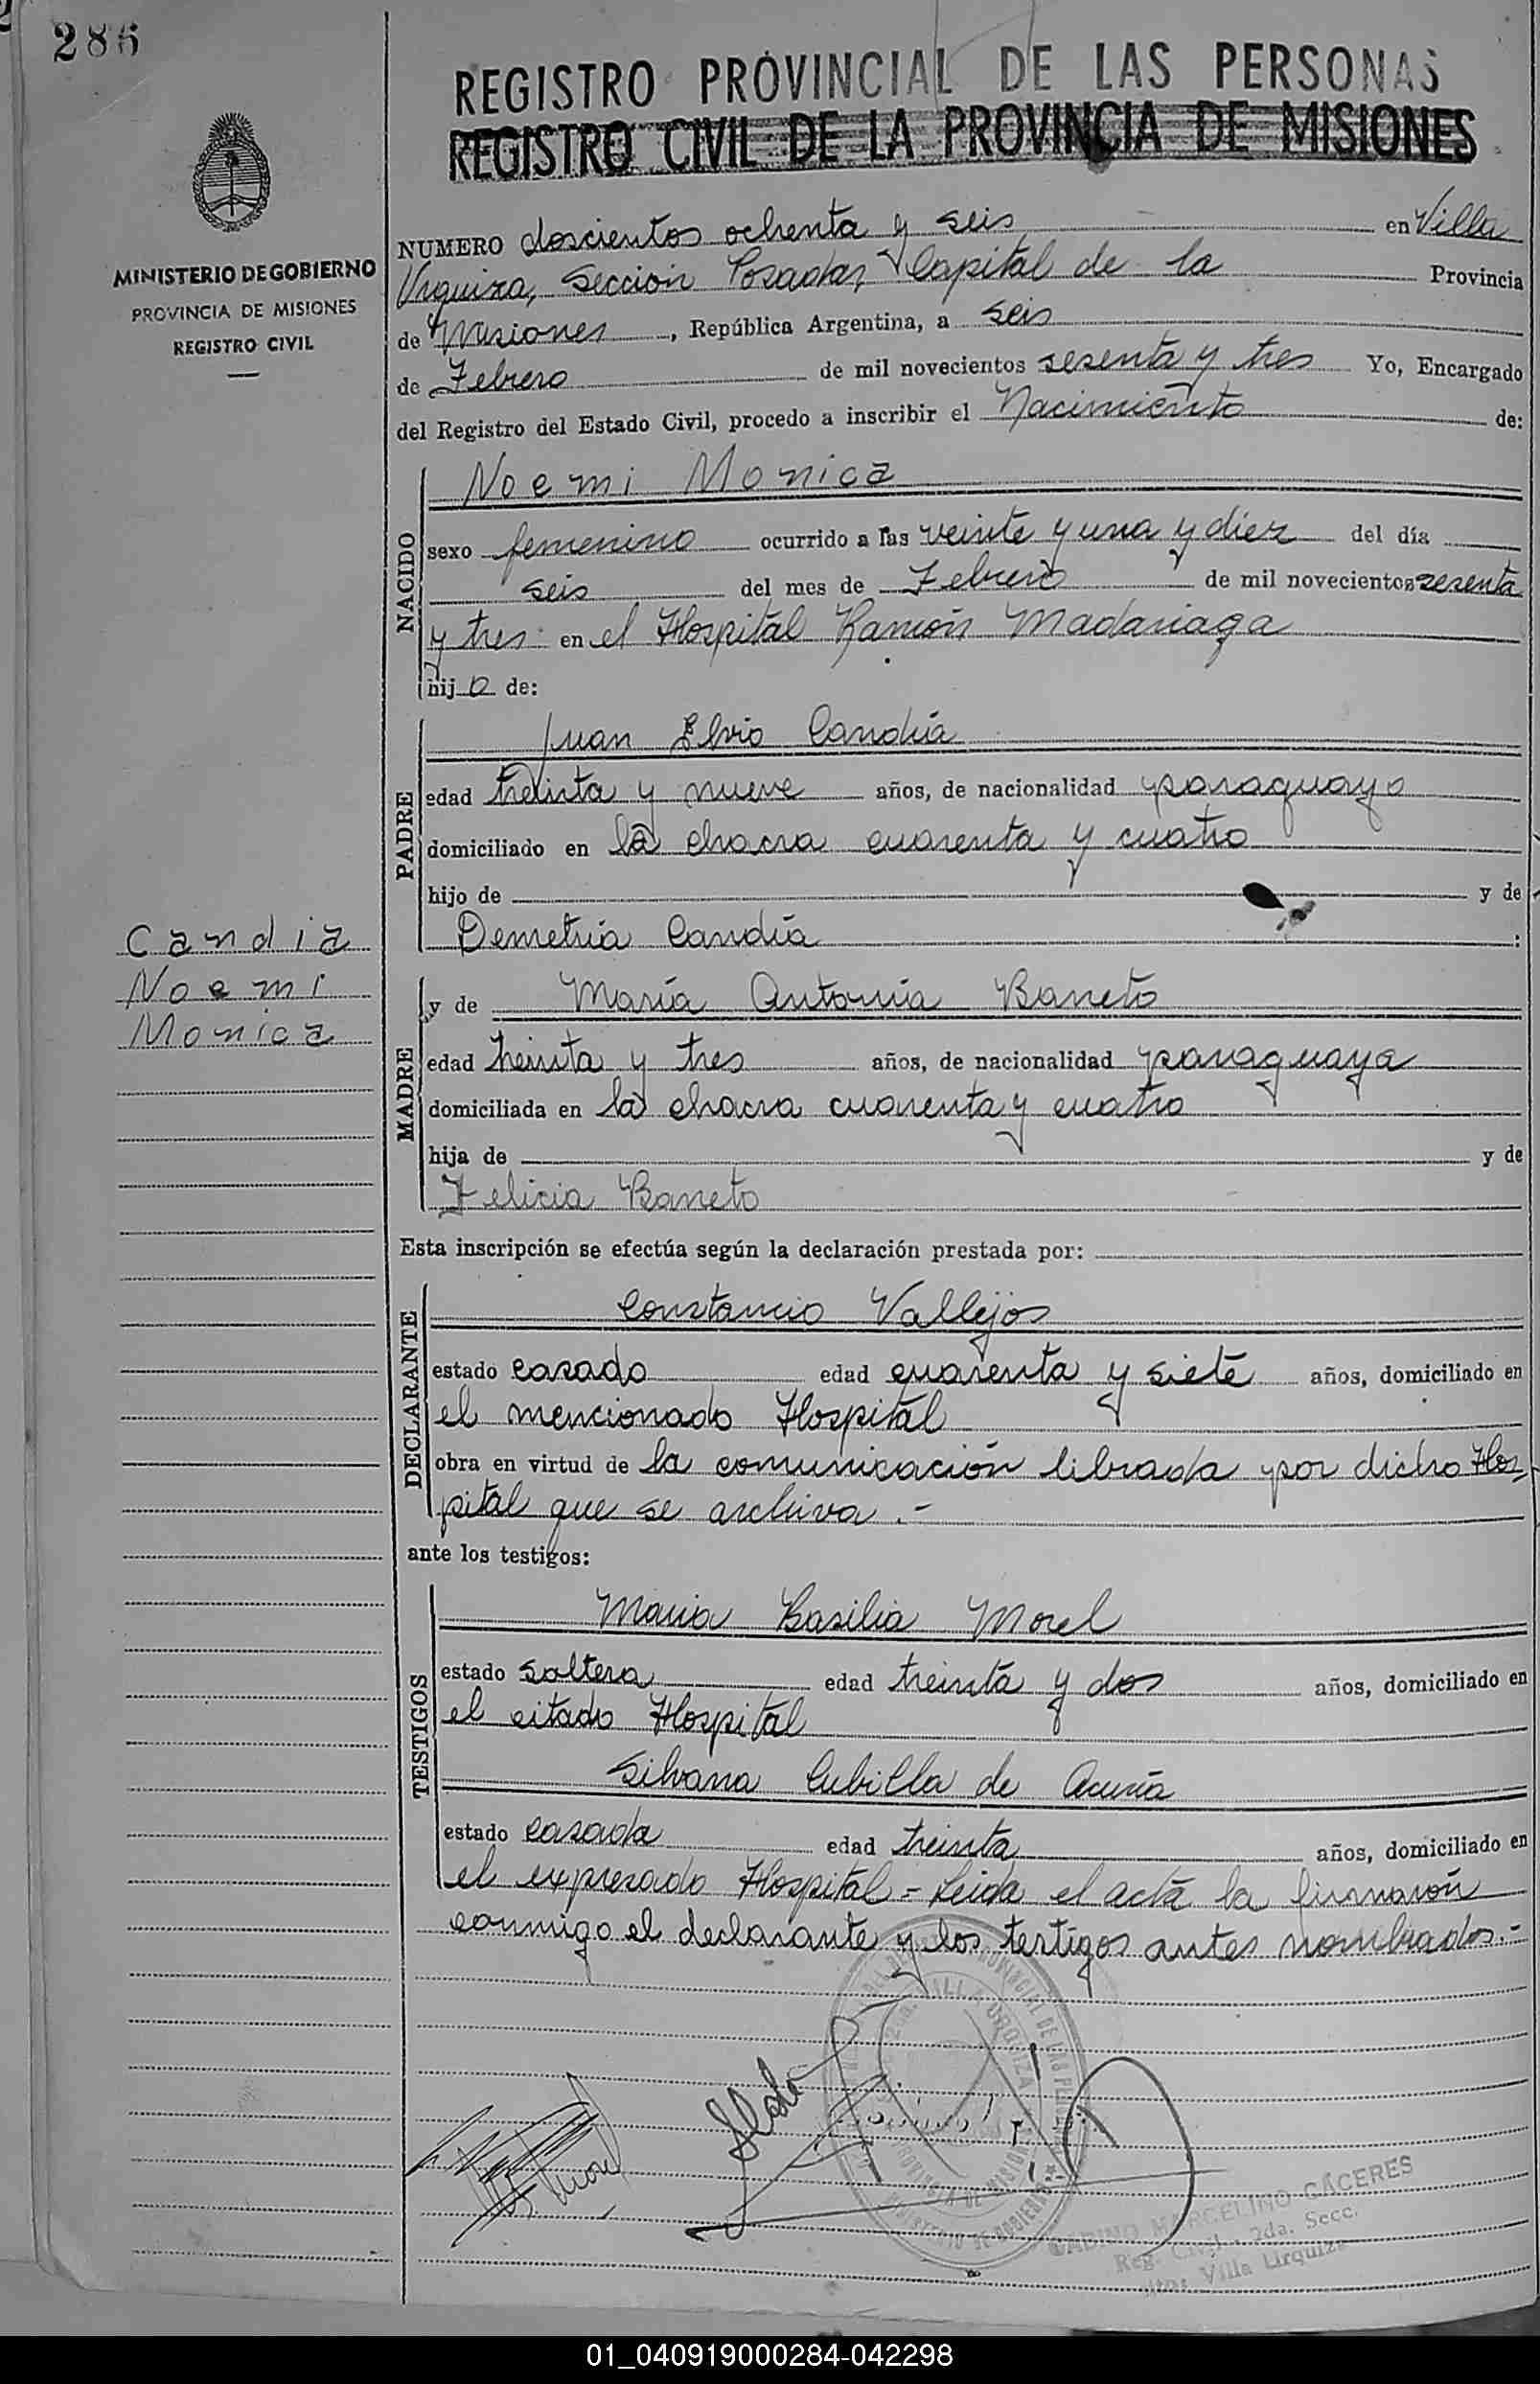 286
REGISTRO PROVINCIAL DE LAS PERSONAS
REGISTRO CIVIL DE LA PROVINCIA DE MISIONES
MINISTERIO DE GOBIERNO
PROVINCIA DE MISIONES
REGISTRO CIVIL
NUMERO doscientos ochenta y seis en Villa
Urquiza, Sección Posadas, Capital de la Provincia
de Misiones, República Argentina, a seis
de Febrero de mil novecientos sesenta y tres Yo, Encargado
del Registro del Estado Civil, procedo a inscribir el Nacimiento de:
NACIDO
Noemi Monica
sexo femenino ocurrido a las veinte y una y diez del día
seis del mes de Febrero de mil novecientos sesenta
y tres en el Hospital Ramón Madariaga
hija de:
PADRE
Juan Elvio Candia
edad treinta y nueve años, de nacionalidad paraguayo
domiciliado en la chacra cuarenta y cuatro
hijo de y de
Demetria Candia :
Candia
Noemi
Monica
MADRE
y de María Antonia Barreto
edad treinta y tres años, de nacionalidad paraguaya
domiciliada en la chacra cuarenta y cuatro
hija de y de
Felicia Barreto
Esta inscripción se efectúa según la declaración prestada por:
DECLARANTE
Constancio Vallejos
estado casado edad cuarenta y siete años, domiciliado en
el mencionado Hospital
obra en virtud de la comunicación librada por dicho Hos-
pital que se archiva.-
ante los testigos:
TESTIGOS
Maria Basilia Morel
estado soltera edad treinta y dos años, domiciliado en
el citado Hospital
Silvana Cubilla de Acuña
estado casada edad treinta años, domiciliado en
el expresado Hospital = Leida el acta la firmaron
conmigo el declarante y los testigos antes nombrados.-
MARCELINO CÁCERES
Reg. Civil - 2da. Secc.
Villa Urquiza
01_040919000284-042298